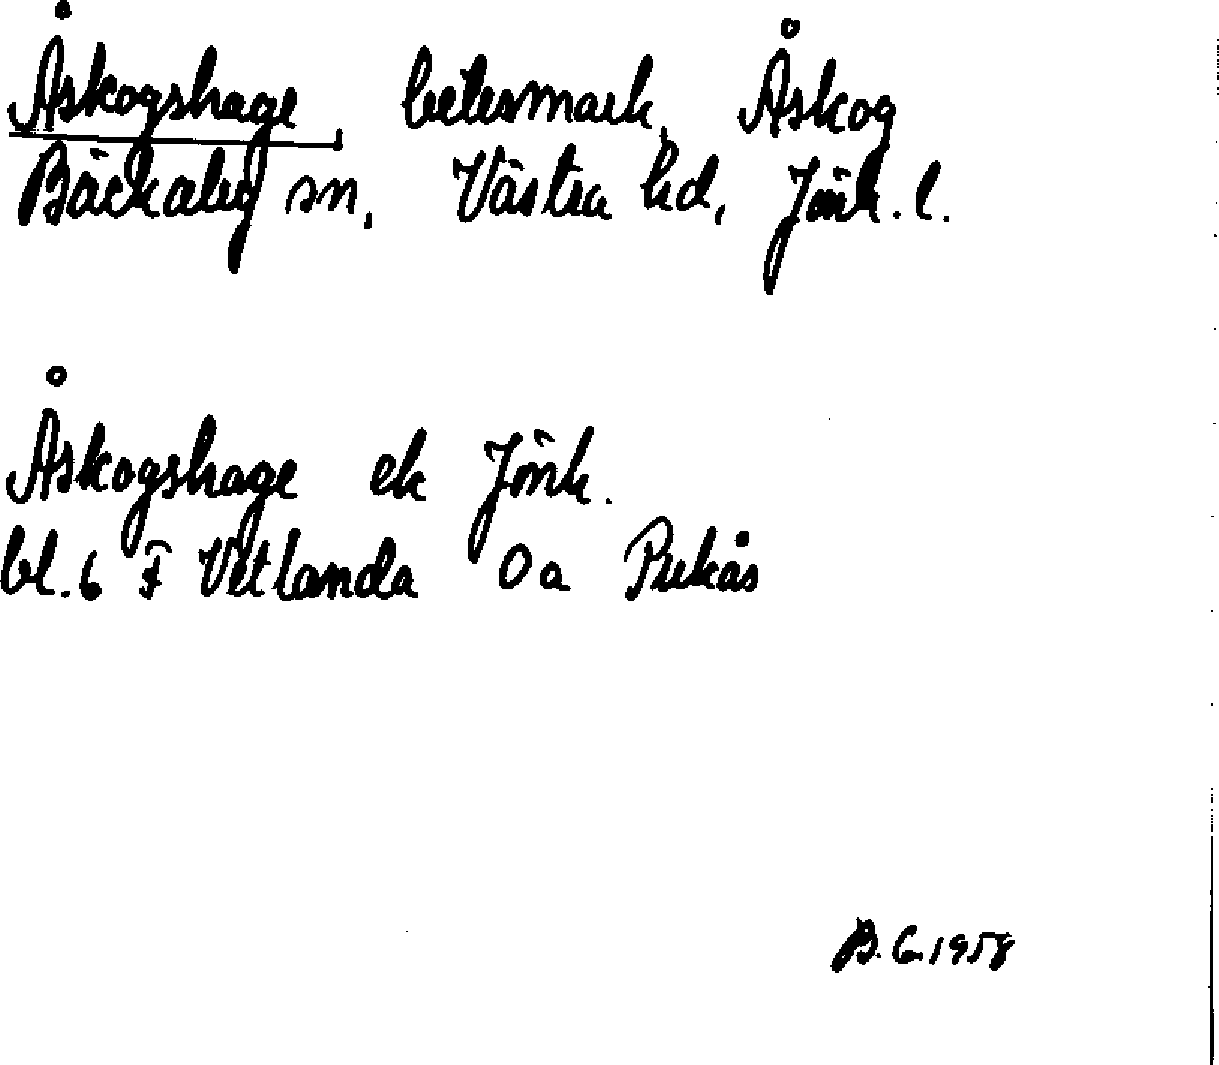 Åskogshage, betesmark, Åskog
Bäckaby sn, Västra hd, Jönk. l.
Åskogshage ek Jönk.
bl. 6 F Vetlanda 0 a Pukås
B. G. 1958